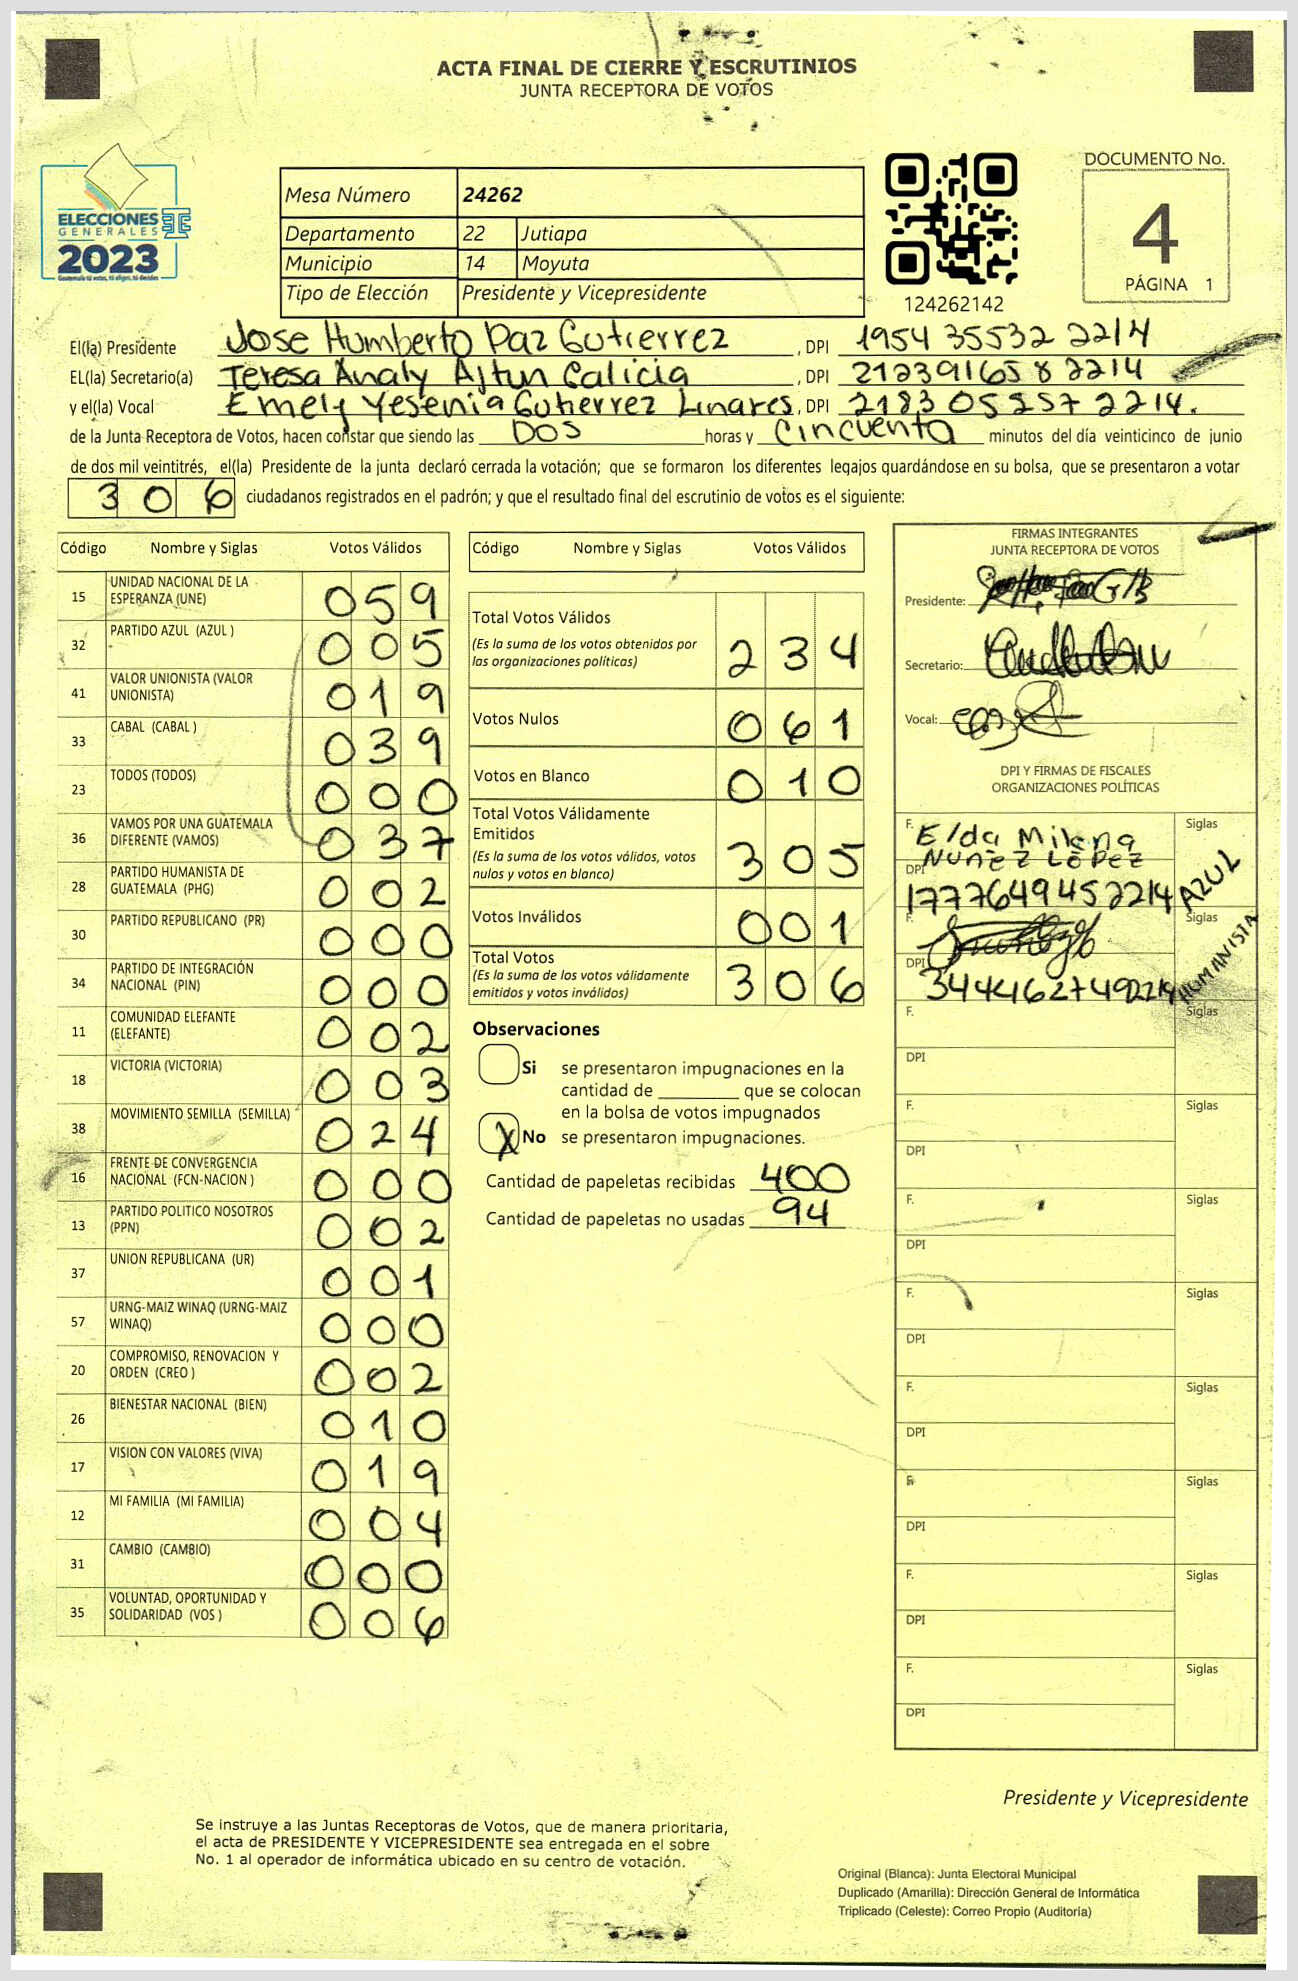 ACTA FINAL DE CIERRE Y ESCRUTINIOS
JUNTA RECEPTORA DE VOTOS
ELECCIONES
GENERALES
2023
Guatemala tú votas, tú eliges, tú decides
Mesa Número 24262
Departamento 22 Jutiapa
Municipio 14 Moyuta
Tipo de Elección Presidente y Vicepresidente
124262142
DOCUMENTO No.
4
PÁGINA 1
El(la) Presidente Jose Humberto Paz Gutierrez, DPI 1954 35532 2214
EL(la) Secretario(a) Teresa Analy Ajtun Calicia, DPI 2123916582214
y el(la) Vocal Emely Yesenia Gutierrez Linares, DPI 2183 05257 2214.
de la Junta Receptora de Votos, hacen constar que siendo las DOS horas y Cincuenta minutos del día veinticinco de junio
de dos mil veintitrés, el(la) Presidente de la junta declaró cerrada la votación; que se formaron los diferentes legajos guardándose en su bolsa, que se presentaron a votar
306 ciudadanos registrados en el padrón; y que el resultado final del escrutinio de votos es el siguiente:
Código Nombre y Siglas Votos Válidos
15 UNIDAD NACIONAL DE LA ESPERANZA (UNE) 059
32 PARTIDO AZUL (AZUL ) 005
41 VALOR UNIONISTA (VALOR UNIONISTA) 019
33 CABAL (CABAL ) 039
23 TODOS (TODOS) 000
36 VAMOS POR UNA GUATEMALA DIFERENTE (VAMOS) 037
28 PARTIDO HUMANISTA DE GUATEMALA (PHG) 002
30 PARTIDO REPUBLICANO (PR) 000
34 PARTIDO DE INTEGRACIÓN NACIONAL (PIN) 000
11 COMUNIDAD ELEFANTE (ELEFANTE) 002
18 VICTORIA (VICTORIA) 003
38 MOVIMIENTO SEMILLA (SEMILLA) 024
16 FRENTE DE CONVERGENCIA NACIONAL (FCN-NACION ) 000
13 PARTIDO POLITICO NOSOTROS (PPN) 002
37 UNION REPUBLICANA (UR) 001
57 URNG-MAIZ WINAQ (URNG-MAIZ WINAQ) 000
20 COMPROMISO, RENOVACION Y ORDEN (CREO ) 002
26 BIENESTAR NACIONAL (BIEN) 010
17 VISION CON VALORES (VIVA) 019
12 MI FAMILIA (MI FAMILIA) 004
31 CAMBIO (CAMBIO) 000
35 VOLUNTAD, OPORTUNIDAD Y SOLIDARIDAD (VOS ) 006
Código Nombre y Siglas Votos Válidos
Total Votos Válidos 234
(Es la suma de los votos obtenidos por
las organizaciones políticas)
Votos Nulos 061
Votos en Blanco 010
Total Votos Válidamente
Emitidos 305
(Es la suma de los votos válidos, votos
nulos y votos en blanco)
Votos Inválidos 001
Total Votos 306
(Es la suma de los votos válidamente
emitidos y votos inválidos)
Observaciones
Si se presentaron impugnaciones en la
cantidad de ________ que se colocan
en la bolsa de votos impugnados
X No se presentaron impugnaciones.
Cantidad de papeletas recibidas 400
Cantidad de papeletas no usadas 94
FIRMAS INTEGRANTES
JUNTA RECEPTORA DE VOTOS
Presidente:
Secretario:
Vocal:
DPI Y FIRMAS DE FISCALES
ORGANIZACIONES POLÍTICAS
F. Elda Milena Siglas
Nuñez López
DPI 1777649452214 AZUL
F. Siglas
DPI 3444627492214 HUMANISTA
F. Siglas
DPI
F. Siglas
DPI
F. Siglas
DPI
F. Siglas
DPI
F. Siglas
DPI
F. Siglas
DPI
F. Siglas
DPI
F. Siglas
DPI
Presidente y Vicepresidente
Se instruye a las Juntas Receptoras de Votos, que de manera prioritaria,
el acta de PRESIDENTE Y VICEPRESIDENTE sea entregada en el sobre
No. 1 al operador de informática ubicado en su centro de votación.
Original (Blanca): Junta Electoral Municipal
Duplicado (Amarilla): Dirección General de Informática
Triplicado (Celeste): Correo Propio (Auditoría)